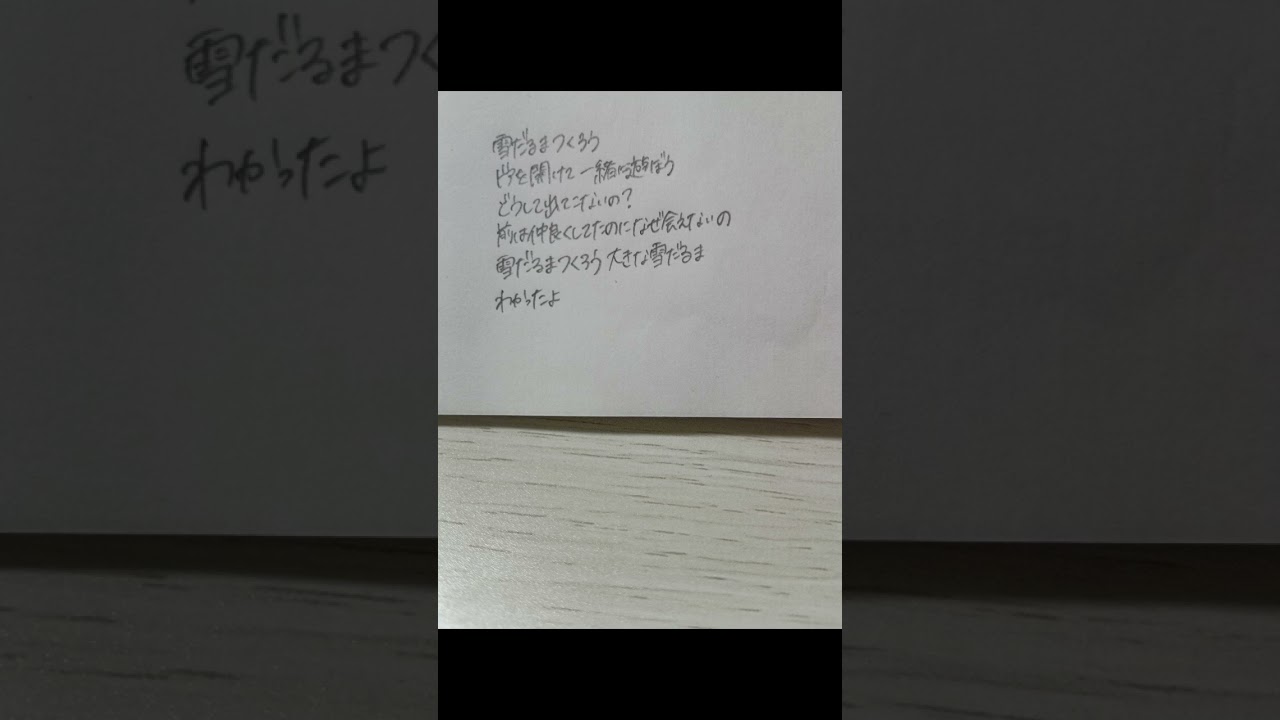 雪だるまつくろう
ドアを開けて一緒に遊ぼう
どうして出てこないの?
前は仲良くしてたのになぜ会えないの
雪だるまつくろう 大きな雪だるま
わかったよ